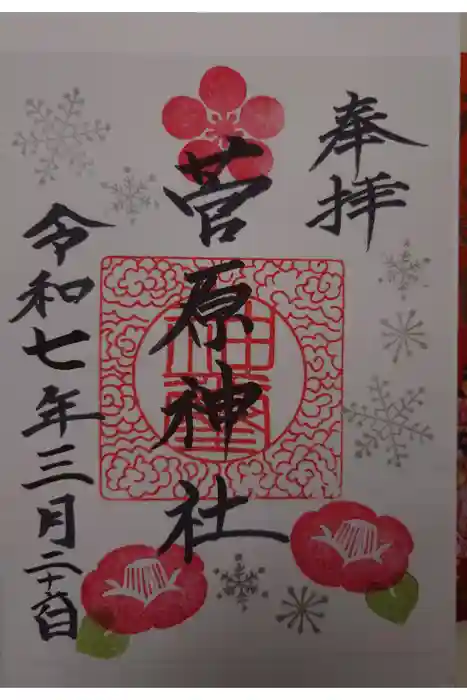 奉拝
菅原神社
令和七年三月二十六日